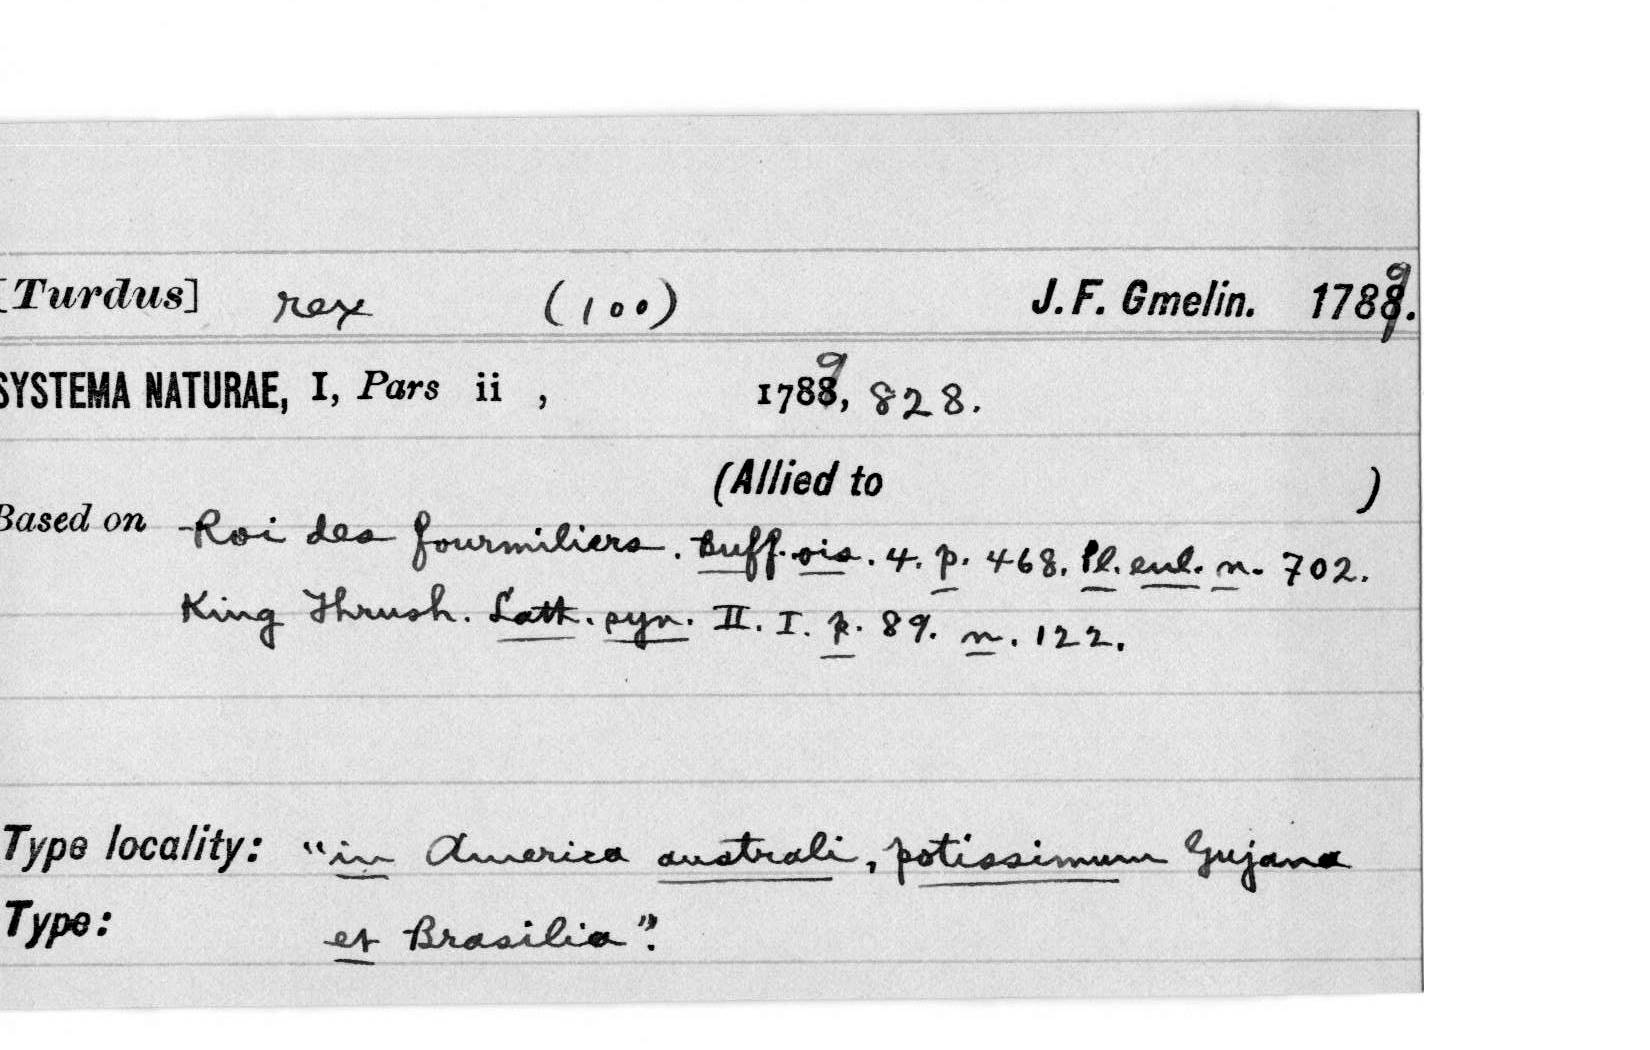 [Turdus] rex (100) J. F. Gmelin. 1789.
SYSTEMA NATURAE, I, Pars ii , 1789, 828.
(Allied to )
Based on Roi des fourmiliers. Buff. ois. 4. p. 468. Pl. enl. n. 702.
King Thrush. Lath. syn. II. I. p. 89. n. 122.
Type locality: "in America australi, potissimum Gujana
Type: et Brasilia".